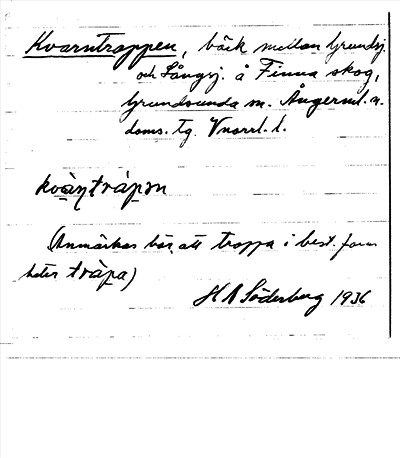 Kvarntrappen, bäck mellan Grundsj.
och Långsj. å Finna skog,
Grundsunda sn. Ångerml. s.
doms. tg. Vnorrl. l.
kvàn̥tràpən
(Anmärkas bör, att trappa i best. form
heter tràpa)
H A Söderberg 1936